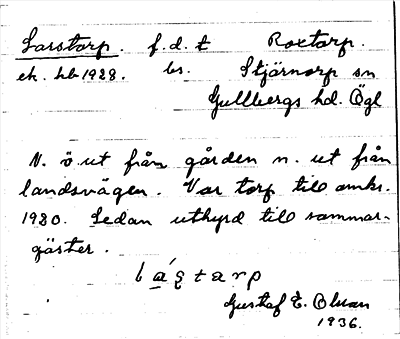 Larstorp. f.d.t Roxtorp.
ek. bl. 1928. bs. Stjärnorp sn
Gullbergs hd. Ögl
N. ö. ut från gården n. ut från
landsvägen. Var torp till omkr.
1920. Sedan uthyrd till sommar-
gäster.
Gustaf E. Olsson
1936.